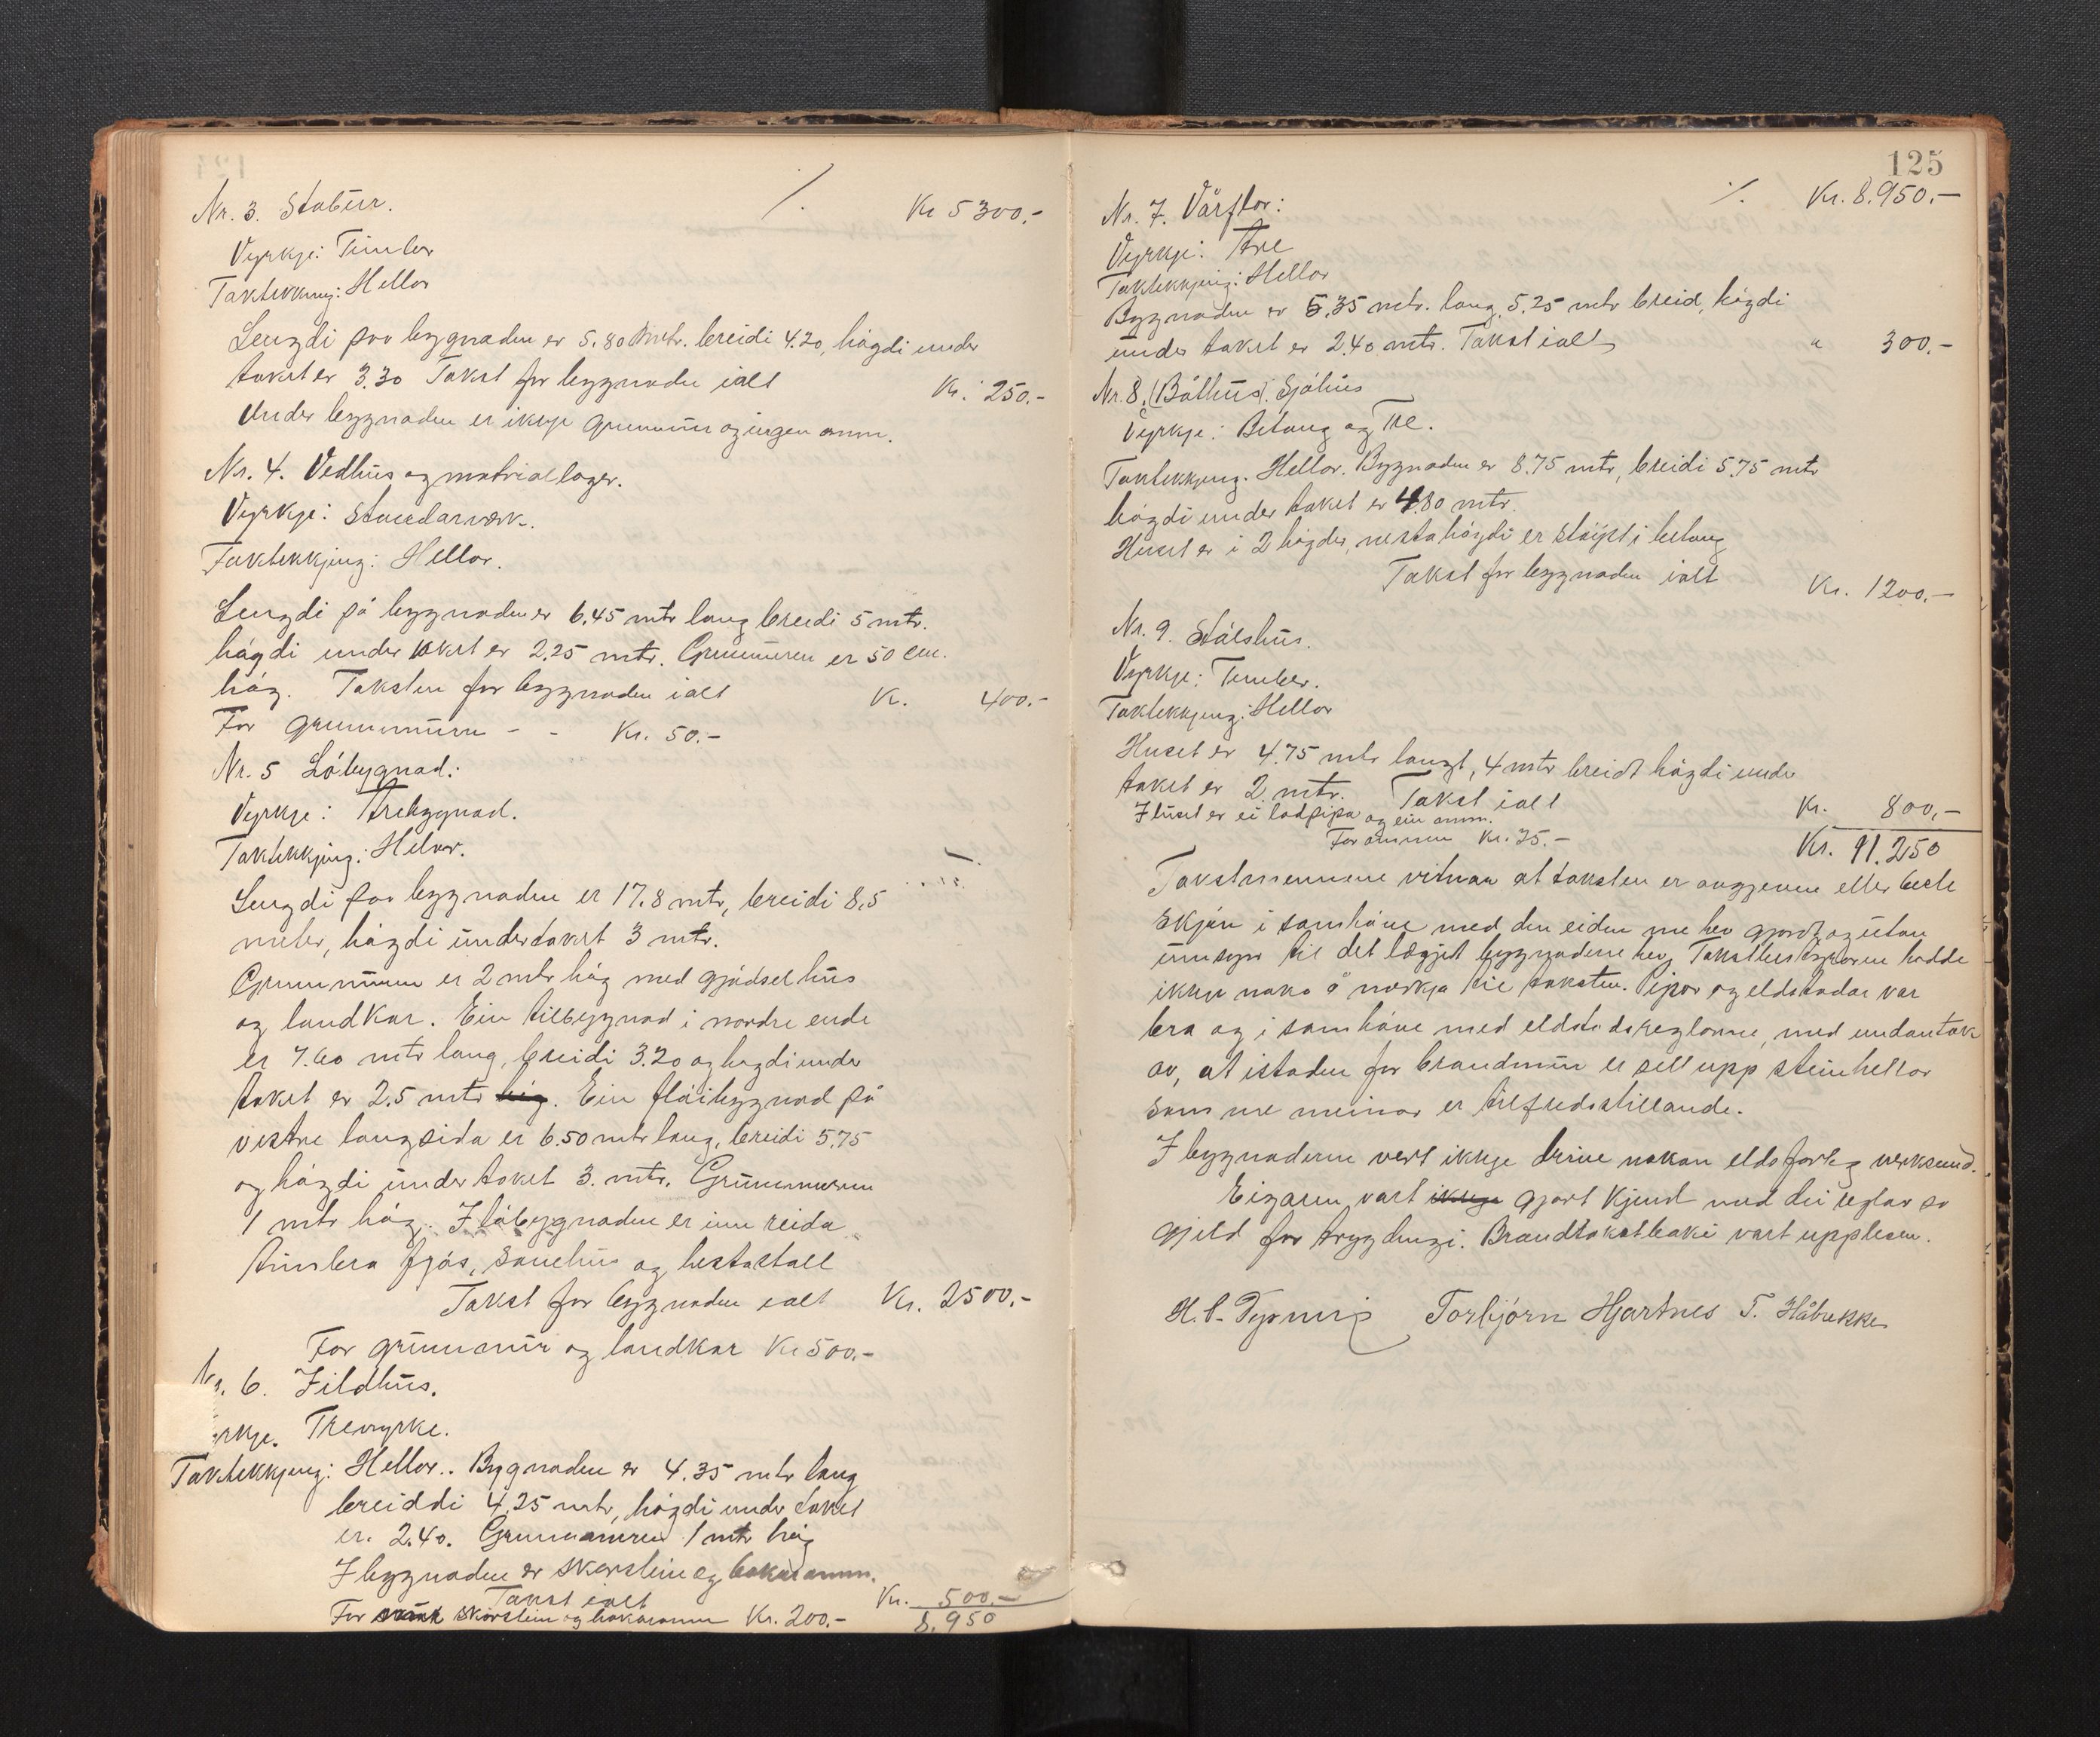 Nr. 3. Stabur. ·/. Kr 5300.-
Vyrkje: Timber
Taktekking: Hellor
Lengdi paa bygnaden er 5.80 mtr. breidi 4.20, högdi under
taket er 3.30 Takst for byggnaden ialt Kr. 250.-
Under byggnaden er ikkje grunnmur og ingen omn.
Nr. 4. Vedhus og matriallager.
Vyrkje: Standarverk.
Taktekkjing: Hellor.
Lengdi på byggnaden er 6.45 mtr lang breidi 5 mtr.
högdi under taket er 2.25 mtr. Grunnmuren er 50 cm.
hög. Taksten for byggnaden ialt Kr. 400.-
For grunnmuren - - Kr. 50.-
Nr. 5 Löbygnad:
Vyrkje: Trebygnad.
Taktekkjing: Helvor.
Lengdi paa byggnaden er 17.8 mtr, breidi 8,5
meter, högdi under taket 3 mtr.
Grunnmuren er 2 mtr hög med gjödselhus
og landkar. Ein tilbygnad i nordre ende
er 7.60 mtr lang, breidi 3.20 og högdi under
taket er 2.5 mtr hög. Ein flöibyggnad på
vestre langsida er 6.50 mtr lang, breidi 5.75
og högdi under taket 3. mtr. Grunnmuren
1 mtr hög. I löbygnaden er inn reida
timbra fjös, sauehus og hestastall
Takst for byggnaden ialt Kr. 2500.-
For grunnmur og landkar Kr 500.-
Nr. 6. Jildhus.
rkje. Trevyrke.
Taktekkjing: Hellor.. Bygnaden er 4.35 mtr lang
breiddi 4,25 mtr, högdi under taket
er. 2.40. Grunnmuren 1 mtr hög
I byggnaden er skorstein og bakaromn.
Takst ialt Kr. 500.-
For skorstein og bakaromn Kr. 200.- 8.950
125
Nr. 7. Vårflor: ·/. Kr. 8.950.-
Vyrkje: Tre
Taktekkjing: Hellor
Bygnaden er 5.35 mtr. lang, 5.25 mtr breid, högdi
under taket er 2.40 mtr. Takst ialt " 300.-
Nr. 8. (Båthus). Sjöhus
Vyrkje: Betong og Tre.
Taktekkjing. Hellor. Bygnaden er 8.75 mtr, breidi 5.75 mtr
högdi under taket er 4.80 mtr.
Huset er i 2 högder, nesta högdi er stöypt i betong
Takst for byggnaden ialt Kr. 1200.-
Nr. 9. Stölshus.
Vyrkje: Timber.
Taktekkjing: Hellor
Huset er 4.75 mtr langt, 4 mtr breidt högdi under
taket er 2 mtr. Takst ialt Kr. 800,-
I huset er ei ladpipa og ein omn.
For omnen Kr. 25.- Kr. 11.250
Takstmennene vitnar at taksten er avgjeven etter beste
skjön i samhöve med den eiden me hev gjort og utan
umsyn til det lægjet bygnadene hev. Takstbestyraren hadde
ikkje noko å merkja til taksten. Pipor og eldstadar var
bra og i samhöve med eldstadsreglarne, med undantak
av, at istaden for brandmur er sett upp steinhellor
som me meinar er tilfredsstillande.
I byggnaderne vert ikkje drive nokon eldsfarleg verksemd.
Eigaren vart ikkje gjort kjend med dei reglar so
gjeld for trygdingi. Brandtakstboki vart upplesen.
Torbjörn Hjartnes T. Håbrekke